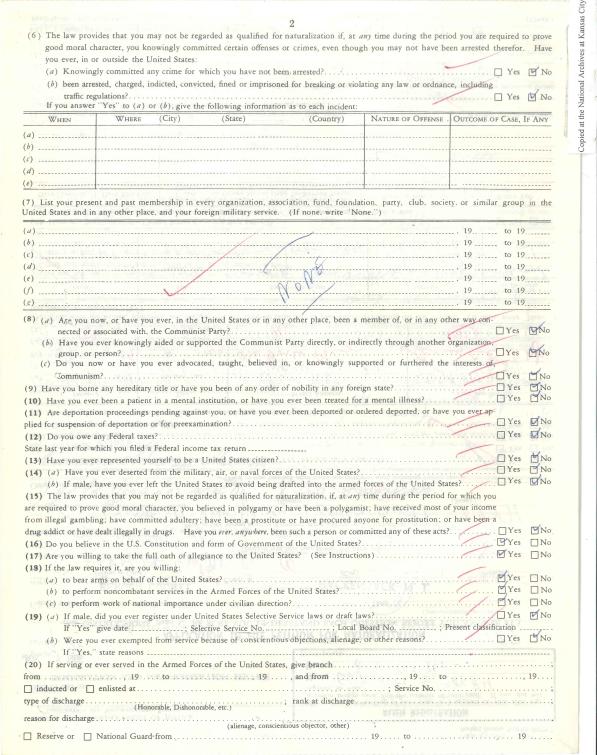 2
(6) The law provides that you may not be regarded as qualified for naturalization if, at any time during the period you are required to prove
good moral character, you knowingly committed certain offenses or crimes, even though you may not have been arrested therefor. Have
you ever, in or outside the United States:
(a) Knowingly committed any crime for which you have not been arrested? ☐ Yes ☑ No
(b) been arrested, charged, indicted, convicted, fined or imprisoned for breaking or violating any law or ordnance, including
traffic regulations? ☐ Yes ☑ No
If you answer "Yes" to (a) or (b), give the following information as to each incident:
WHEN WHERE (City) (State) (Country) NATURE OF OFFENSE OUTCOME OF CASE, IF ANY
(a)
(b)
(c)
(d)
(e)
(7) List your present and past membership in every organization, association, fund, foundation, party, club, society, or similar group in the
United States and in any other place, and your foreign military service. (If none, write "None.")
(a) , 19 to 19
(b) , 19 to 19
(c) , 19 to 19
(d) , 19 to 19
(e) , 19 to 19
(f) , 19 to 19
(g) , 19 to 19
NONE
(8) (a) Are you now, or have you ever, in the United States or in any other place, been a member of, or in any other way con-
nected or associated with, the Communist Party? ☐ Yes ☑ No
(b) Have you ever knowingly aided or supported the Communist Party directly, or indirectly through another organization,
group, or person? ☐ Yes ☑ No
(c) Do you now or have you ever advocated, taught, believed in, or knowingly supported or furthered the interests of,
Communism? ☐ Yes ☑ No
(9) Have you borne any hereditary title or have you been of any order of nobility in any foreign state? ☐ Yes ☑ No
(10) Have you ever been a patient in a mental institution, or have you ever been treated for a mental illness? ☐ Yes ☑ No
(11) Are deportation proceedings pending against you, or have you ever been deported or ordered deported, or have you ever ap-
plied for suspension of deportation or for preexamination? ☐ Yes ☑ No
(12) Do you owe any Federal taxes? ☐ Yes ☑ No
State last year for which you filed a Federal income tax return
(13) Have you ever represented yourself to be a United States citizen? ☐ Yes ☑ No
(14) (a) Have you ever deserted from the military, air, or naval forces of the United States? ☐ Yes ☑ No
(b) If male, have you ever left the United States to avoid being drafted into the armed forces of the United States? ☐ Yes ☑ No
(15) The law provides that you may not be regarded as qualified for naturalization, if, at any time during the period for which you
are required to prove good moral character, you believed in polygamy or have been a polygamist; have received most of your income
from illegal gambling; have committed adultery; have been a prostitute or have procured anyone for prostitution; or have been a
drug addict or have dealt illegally in drugs. Have you ever, anywhere, been such a person or committed any of these acts? ☐ Yes ☑ No
(16) Do you believe in the U.S. Constitution and form of Government of the United States? ☑ Yes ☐ No
(17) Are you willing to take the full oath of allegiance to the United States? (See Instructions) ☑ Yes ☐ No
(18) If the law requires it, are you willing:
(a) to bear arms on behalf of the United States? ☑ Yes ☐ No
(b) to perform noncombatant services in the Armed Forces of the United States? ☑ Yes ☐ No
(c) to perform work of national importance under civilian direction? ☑ Yes ☐ No
(19) (a) If male, did you ever register under United States Selective Service laws or draft laws? ☐ Yes ☑ No
If "Yes" give date ; Selective Service No. ; Local Board No. ; Present classification
(b) Were you ever exempted from service because of conscientious objections, alienage, or other reasons? ☐ Yes ☑ No
If "Yes," state reasons
(20) If serving or ever served in the Armed Forces of the United States, give branch
from , 19 to 19 , and from , 19 to , 19
☐ inducted or ☐ enlisted at ; Service No.
type of discharge ; rank at discharge
(Honorable, Dishonorable, etc.)
reason for discharge
(alienage, conscientious objector, other)
☐ Reserve or ☐ National Guard from 19 to 19
Copied at the National Archives at Kansas City